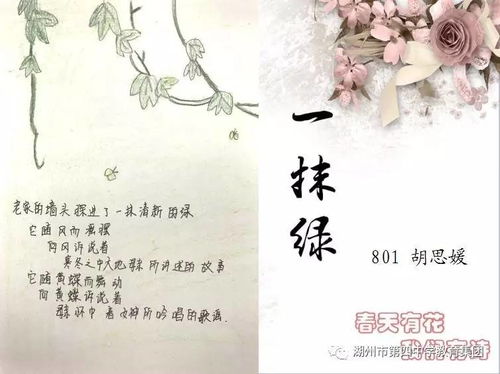 老家的墙头 探进了 一抹清新的绿
它随风而飘摇
向风诉说着
寒冬之中大地 所讲述的 故事
它随黄蝶而舞动
向黄蝶诉说着
怀中 春女神所吟唱的歌谣
一抹绿
801 胡思媛
春天有花
我们有诗
湖州市第四中学教育集团